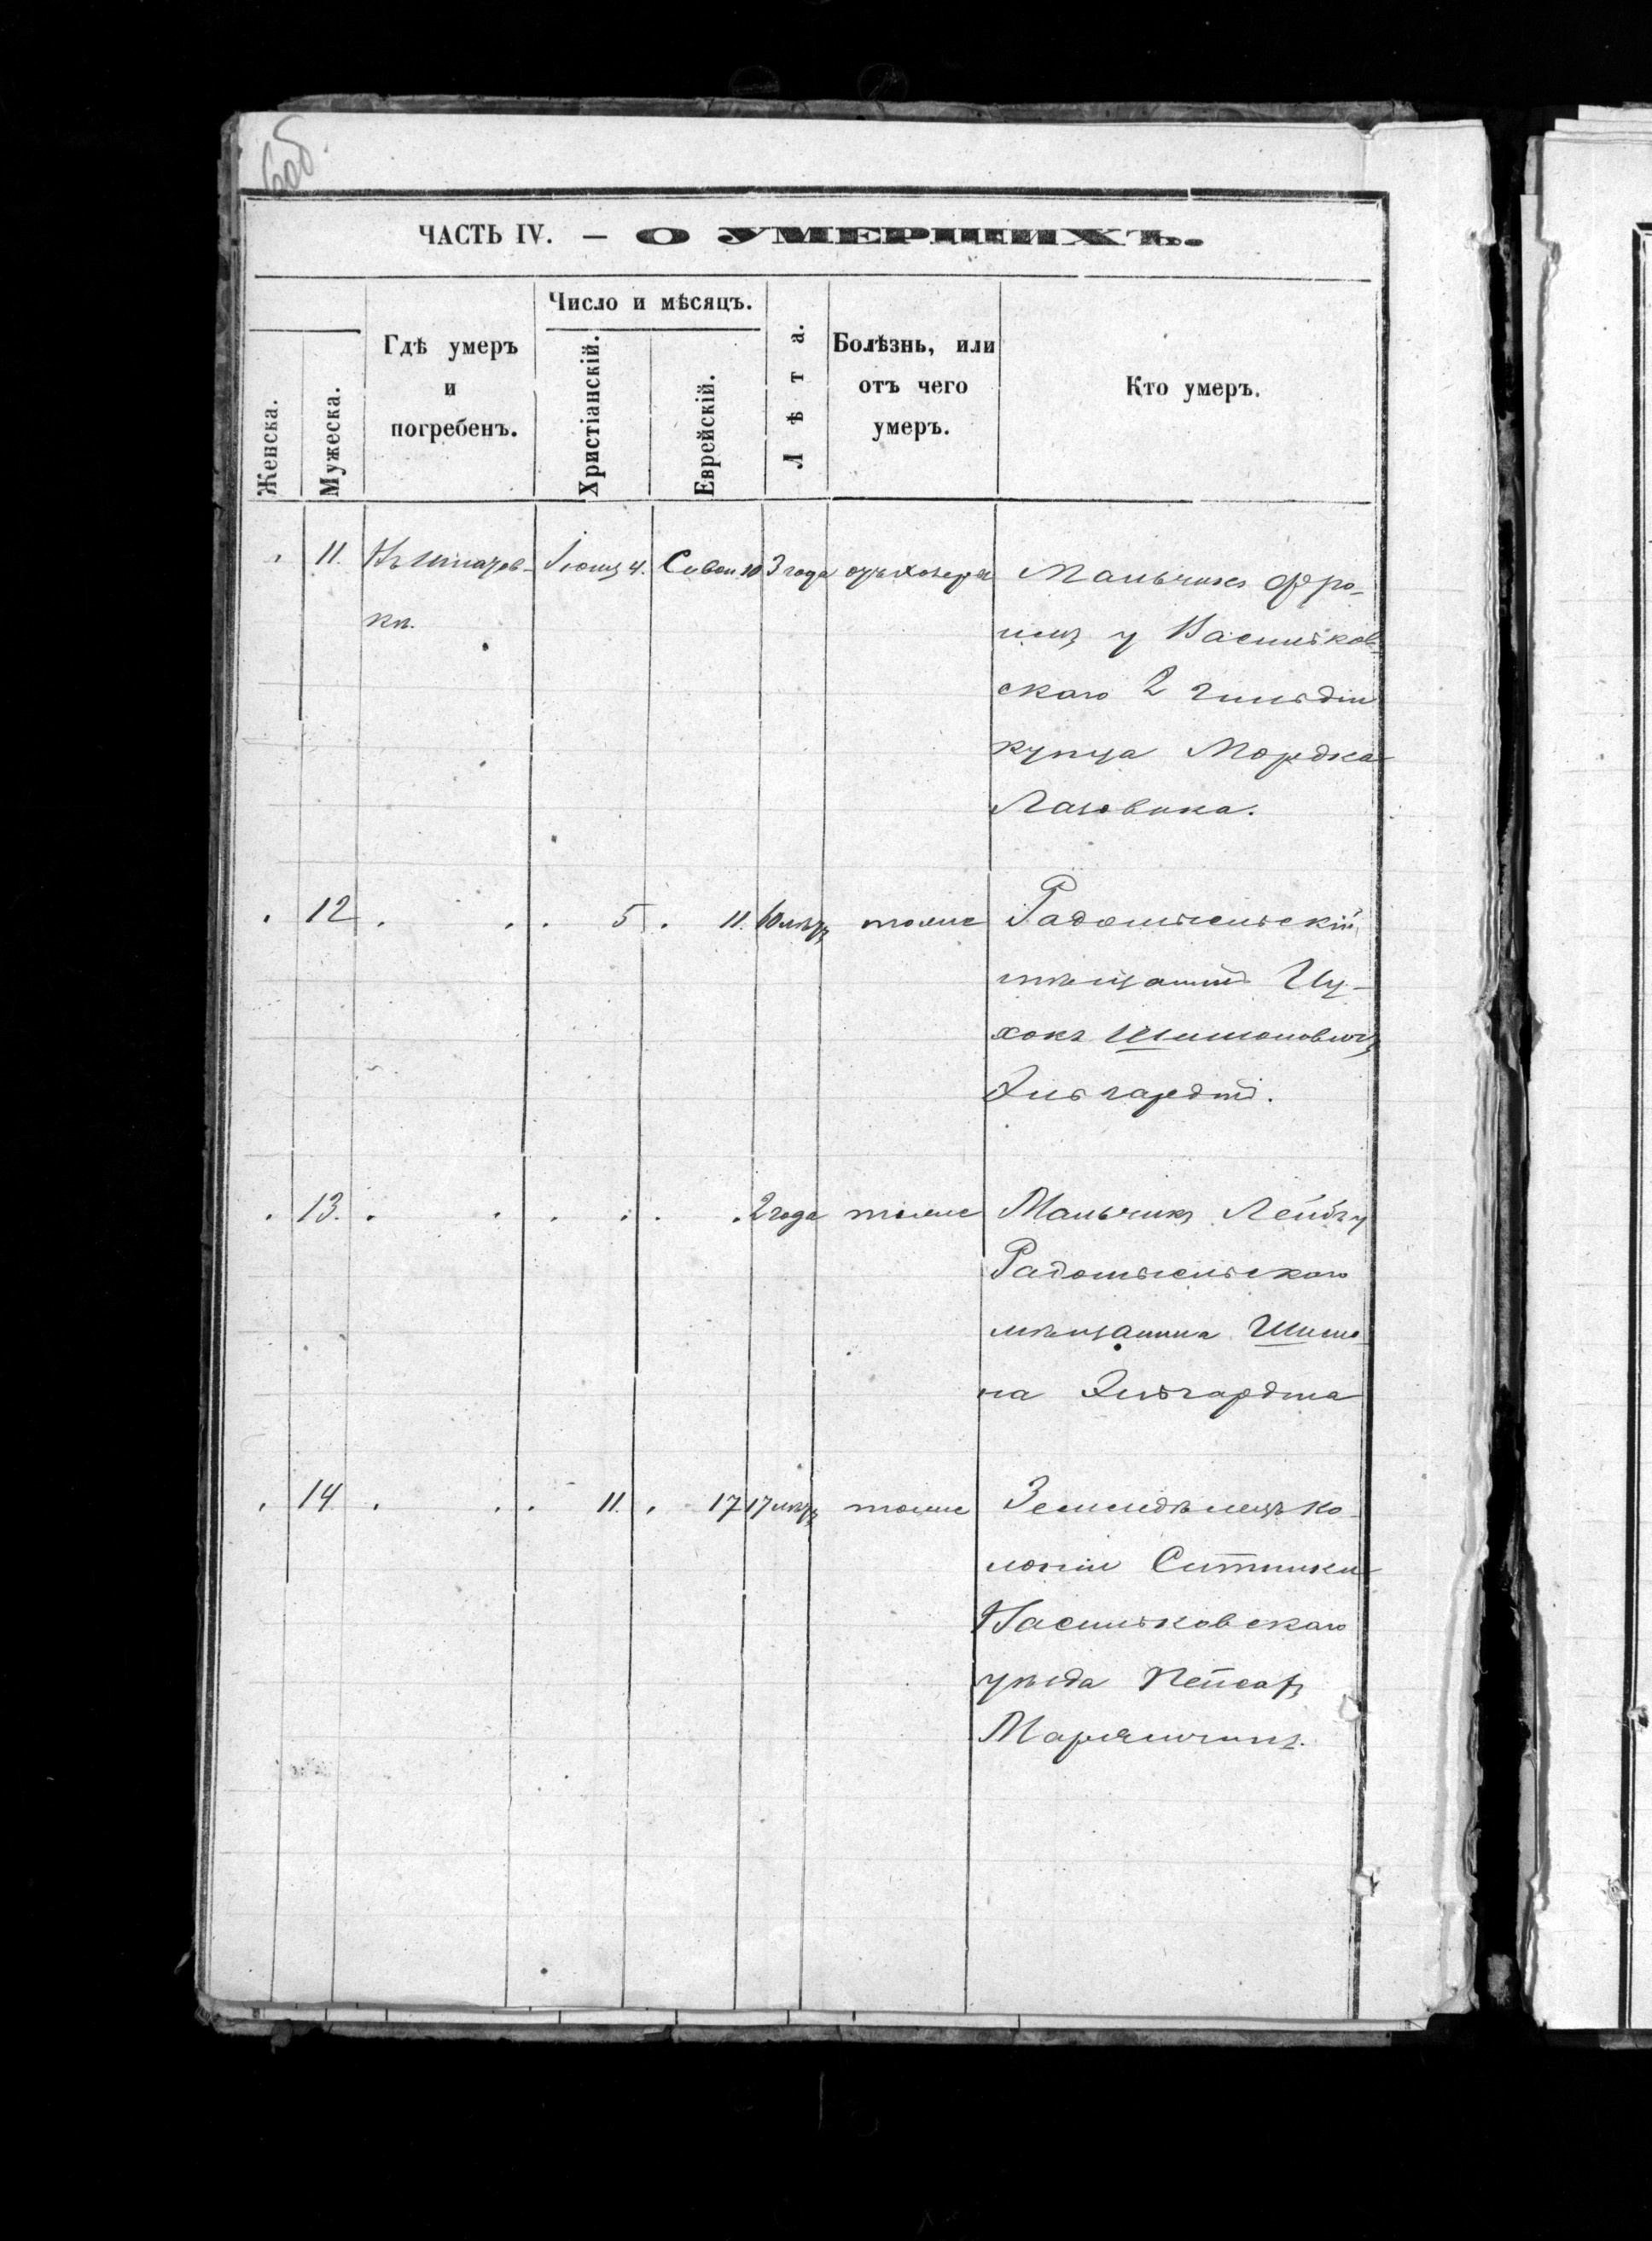 6об
ЧАСТЬ IV. — О УМЕРШИХЪ.
Женска.
Мужеска.
Гдѣ умеръ
и
погребенъ.
Число и мѣсяцъ.
Христіанскій.
Еврейскій.
Лѣта.
Болѣзнь, или
отъ чего
умеръ.
Кто умеръ.
11. Въ Игнатов- Іюнь 4. Сивон 10 3 года отъ холеры Мальчикъ Фро-
ки.
имъ у Васильков-
скаго 2 гильдіи
купца Мордка
12 . . . 5 . 11. 10 лѣтъ тоже Радомысльскій
мѣщанинъ Иц-
хокъ Шимоновичъ
Эльгардтъ.
13. . . . . . . 2 года тоже Мальчикъ Лейбъ у
Радомысльскаго
мѣщанина Шимо
на Эльгардта
14 . . . 11. . 17 17 лѣтъ тоже Земледѣлецъ ко-
лоніи Ситники
Васильковскаго
уѣзда Пейсахъ